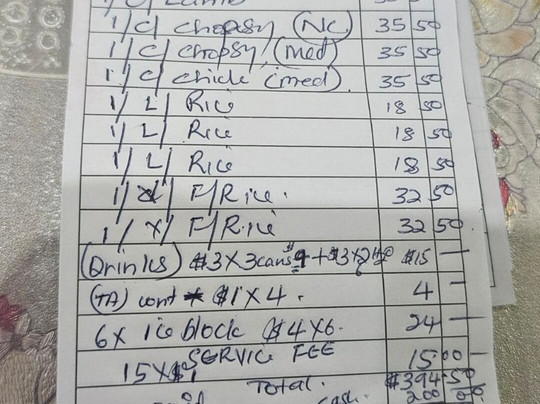 1/C/ Lamb
1/C/ Chopsy (NC) 35 50
1/C/ Chopsy (Med) 35 50
1/C/ Chick (med) 35 50
1/L/ Rice 18 50
1/L/ Rice 18 50
1/L/ Rice 18 50
1/ / F/Rice. 32 50
1/X/ F/Rice 32 50
(Drinks) $3 X 3 cans $9 + $3 X 2 $15 —
(TA) cont $1 X 4. 4 —
6X Ice block $4 X 6. 24 —
SERVICE FEE 15 00 —
15 X $1
Total. $394.50
cash. 200 00